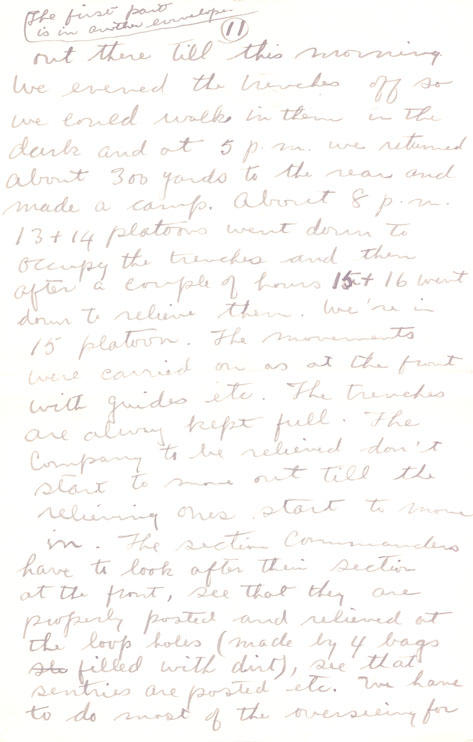 The first part
is in another envelope.
11
out there till this morning
We evened the trenches off so
we could walk in them in the
dark and at 5 p.m. we returned
about 300 yards to the rear and
made a camp. About 8 p.m.
13 + 14 platoons went down to
occupy the trenches and then
after a couple of hours 15 + 16 went
down to relieve them. We're in
15 platoon. The movements
were carried on as at the front
with guides etc. The trenches
are alway kept full. The
Company to be relieved don't
start to move out till the
relieving ones start to move
in. The section Commanders
have to look after their section
at the front, see that they are
properly posted and relieved at
the loop holes (made by 4 bags
filled with dirt), see that
sentries are posted etc. We have
to do most of the overseeing for